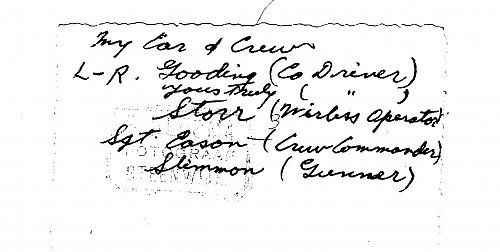 My Car & Crew
L-R. Gooding (Co Driver)
Yours truly ( " )
Storr (Wirless Operator)
Sgt. Eason (Crew Commander)
Slimmon (Gunner)